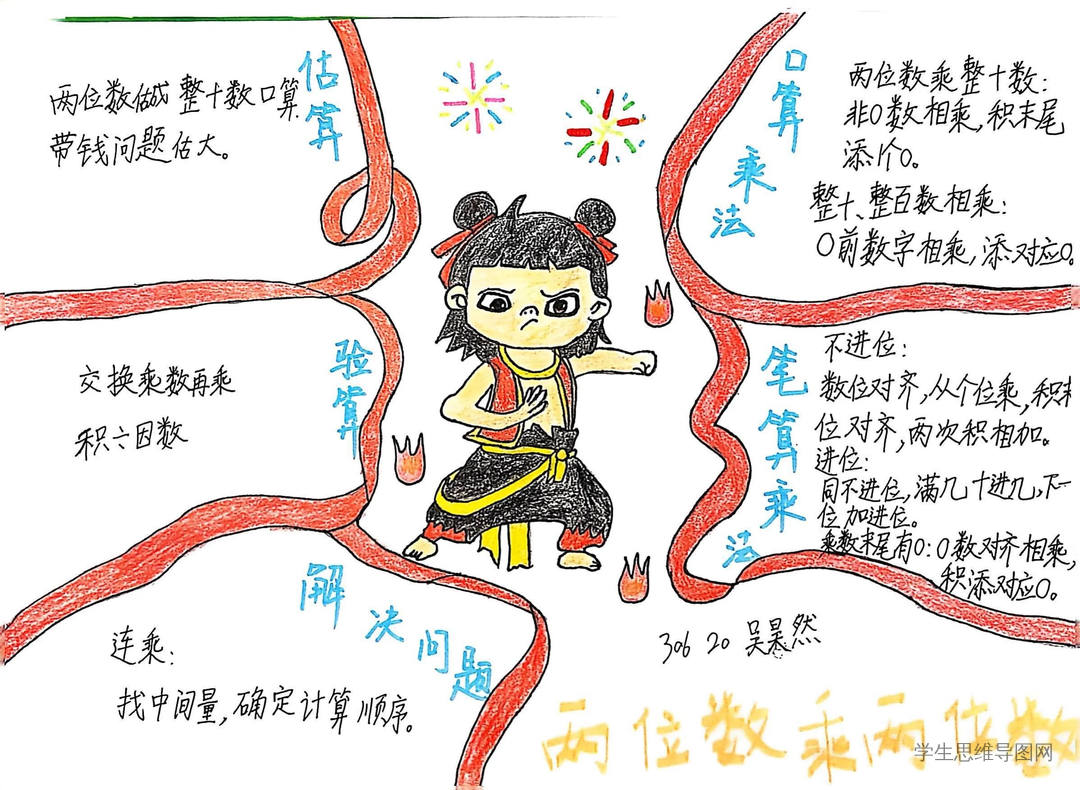 估算
两位数做成整十数口算
带钱问题估大。
口算乘法
两位数乘整十数：
非0数相乘，积末尾
添1个0。
整十、整百数相乘：
0前数字相乘，添对应0。
验算
交换乘数再乘
积÷因数
笔算乘法
不进位：
数位对齐，从个位乘，积末
位对齐，两次积相加。
进位：
同不进位，满几十进几，下一
位加进位。
乘数末尾有0：0数对齐相乘，
积添对应0。
解决问题
连乘：
找中间量，确定计算顺序。
306 20 吴昊然
两位数乘两位数
学生思维导图网